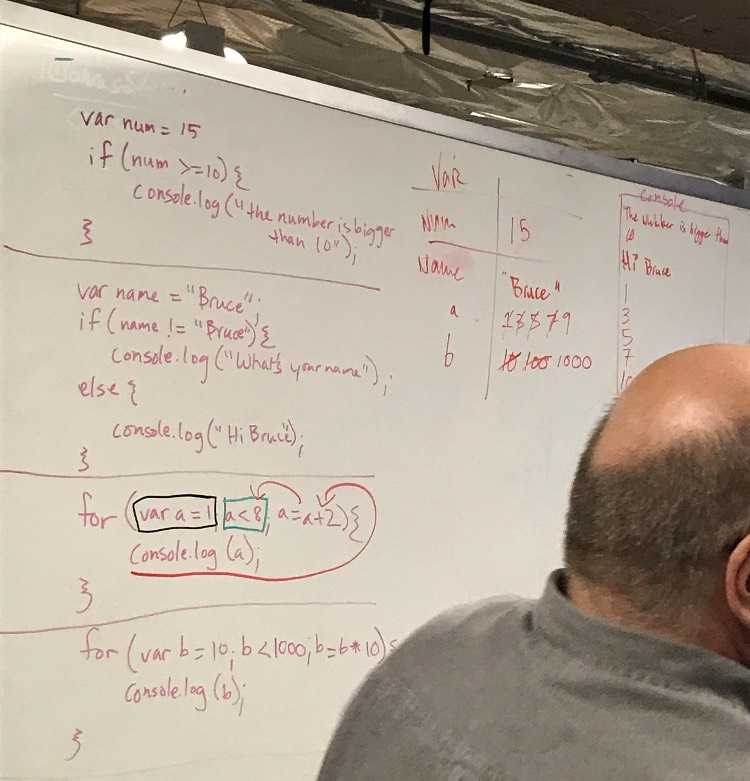 var num = 15
if (num >=10) {
console.log("the number is bigger
than 10");
}
var name = "Bruce";
if (name != "Bruce") {
console.log("What's your name");
else {
console.log("Hi Bruce");
}
for (var a = 1; a < 8; a = a+2) {
console.log (a);
}
for (var b = 10; b < 1000; b = b * 10) {
console.log (b);
}
Var
Num 15
Name "Bruce"
a 1 3 5 7 9
b 10 100 1000
Console
The number is bigger than
10
Hi Bruce
1
3
5
7